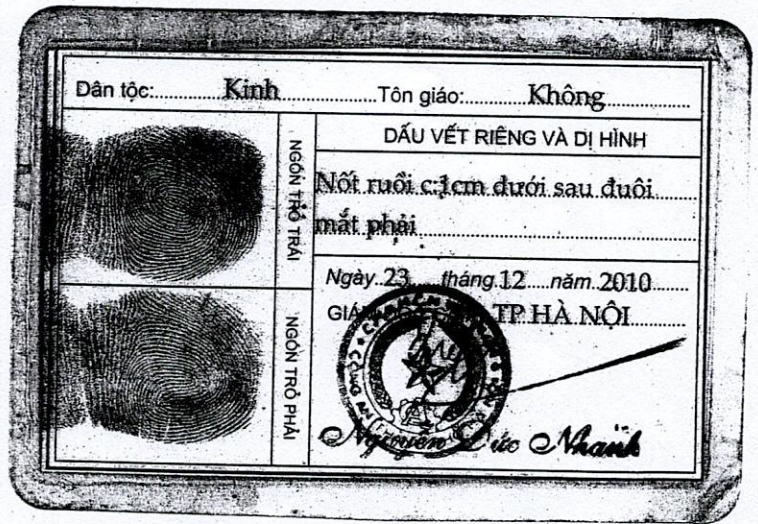 Dân tộc: Kinh Tôn giáo: Không
NGÓN TRỎ TRÁI
NGÓN TRỎ PHẢI
DẤU VẾT RIÊNG VÀ DỊ HÌNH
Nốt ruồi c:1cm dưới sau đuôi
mắt phải
Ngày 23 tháng 12 năm 2010
TP HÀ NỘI
Nguyễn Đức Nhanh